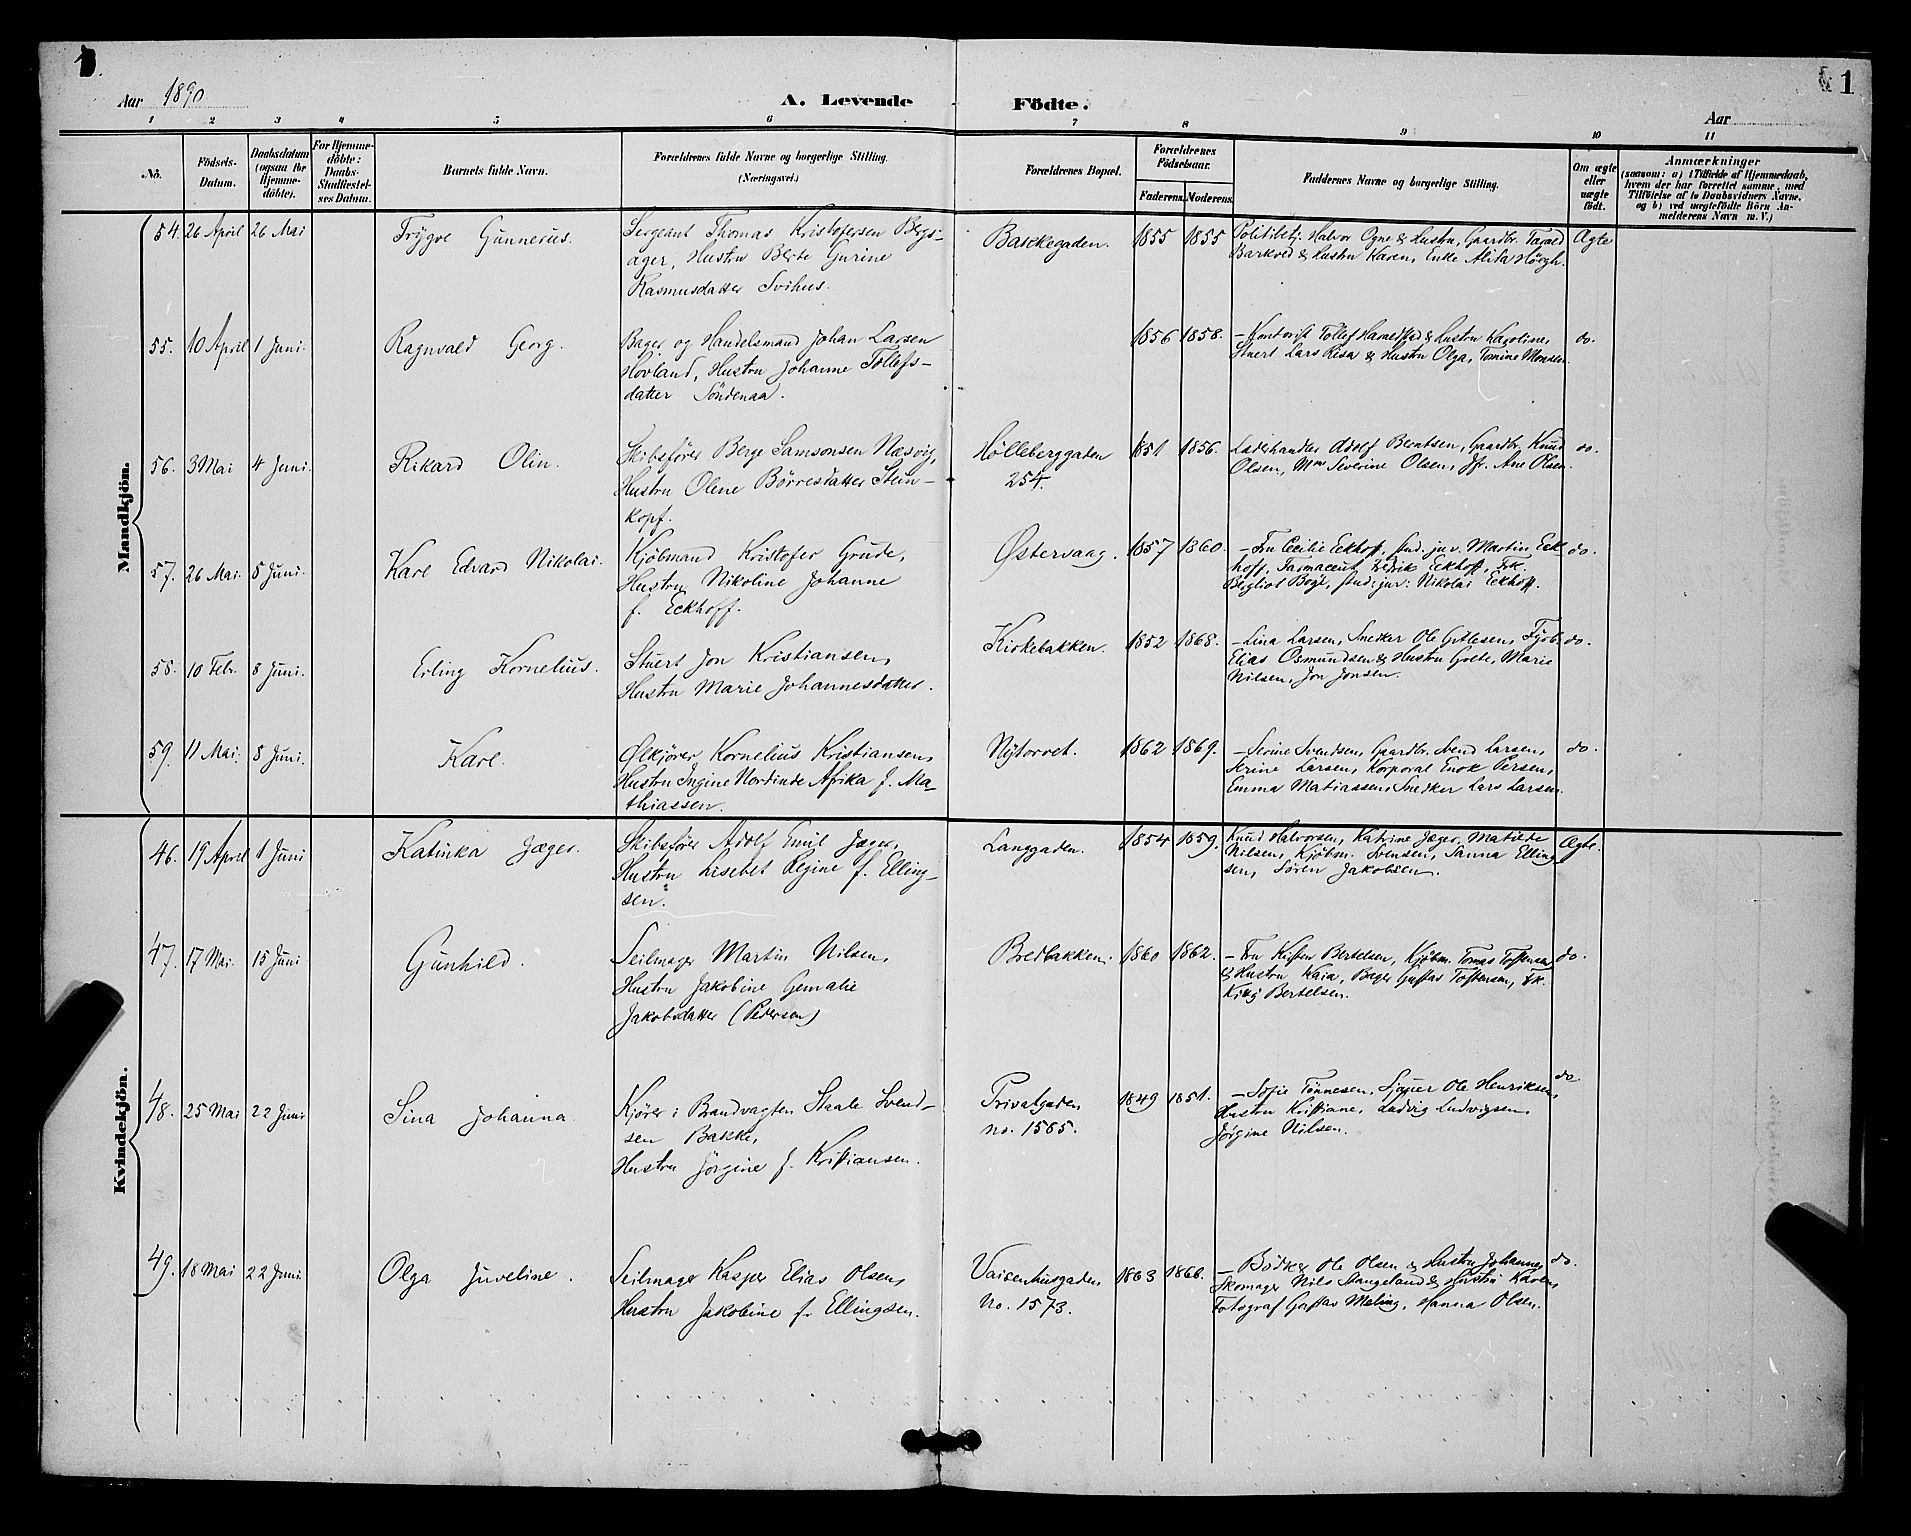 1.
Aar 1890
A. Levende Födte.
Aar
1
1 2 3 4 5 6 7 8 9 10 11
No.
Födsels-
Datum.
Daabsdatum
(ogsaa for
Hjemme-
döbte).
For Hjemme-
döbte:
Daabs-
Stadfæstel-
ses Datum.
Barnets fulde Navn.
Forældrenes fulde Navne og borgerlige Stilling.
(Næringsvei.)
Forældrenes Bopæl.
Forældrenes
Födselsaar.
Faderens. Moderens.
Faddernes Navne og borgerlige Stilling.
Om ægte
eller
uægte
født.
Anmærkninger
(saasom: a) i Tilfælde af Hjemmedaab,
hvem der har forrettet samme, med
Tilföielse af to Daabsvidners Navne.
og b) ved uægtefödte Börn An-
melderens Navn m. V.)
Mandkjön.
54. 26 April 26 Mai Trygve Gunnerus.
Sergeant Thomas Kristofersen Bergs-
ager, Hustru Berte Gurine
Rasmusdatter Svihus.
Bakkegaden. 1855 1855
Politibetj. Halvor Ogne & Hustru, Gaardbr. Tarald
Barkved & Hustru Karen, Enke Alida Høegh.
Ægte
55. 10 April 1 Juni. Ragnvald Georg.
Bager og Handelsmand Johan Larsen
Hovland, Hustru Johanne Tollefs-
datter Söndenaa.
1856 1858.
- Kontorist Tollef Haarstad & Hustru Karoline,
Stuert Lars Risa & Hustru Olga, Tomine Monsen.
do.
56. 3 Mai 4 Juni. Rikard Olin.
Skibsfører Berge Samsonsen Næsvig,
Hustru Olene Børresdatter Stein-
kopf.
Hølleberggaden
254.
1851 1856.
Ladehandler Adolf Berntsen, Gaardbr. Knud
Olsen, Mm Severine Olsen, Jfr. Ane Olsen.
do.
57. 26 Mai. 5 Juni. Karl Edvard Nikolai.
Kjøbmand Kristofer Grude,
Hustru Nikoline Johanne
f. Eckhoff.
Østervaag. 1857 1860.
- Fru Cecilie Eckhoff, stud. juv. Martin Eck-
hoff, Farmaceut Fredrik Eckhoff, Frk.
Bergliot Bøgh, stud: jur: Nikolai Eckhoff.
do.
58. 10 Febr. 8 Juni. Erling Kornelius.
Stuert Jon Kristiansen,
Hustru Marie Johannesdatter.
Kirkebakken. 1852 1868.
- Lina Larsen, Snedker Ole Gitlesen, Fyrb.
Elias Osmundsen & Hustru Grete, Marie
Nilsen, Jon Jonsen.
do.
59. 11 Mai. 8 Juni. Karl.
Ølkjører Kornelius Kristiansen,
Hustru Ingine Nordinde Afrika f. Ma-
thiassen.
Nytorvet. 1862 1869.
- Serine Svendsen, Gaardbr. Svend Larsen,
Serine Larsen, Korporal Enok Persen,
Emma Matiassen, Snedker Lars Larsen.
do.
Kvindekjön.
46. 19 April 1 Juni Katinka Jæger.
Skibsfører Adolf Emil Jæger,
Hustru Lisebet Regine f. Elling-
sen.
Langgaden. 1854 1859.
Knud Halvorsen, Katrine Jæger, Matilde
Nilsen, Kjøbm. Svensen, Sanna Elling-
sen, Søren Jakobsen.
Ægte.
47. 17 Mai. 15 Juni Gunhild.
Seilmager Martin Nilsen,
Hustru Jakobine Gemalie
Jakobsdatter (Pedersen)
Bredbakken. 1860 1862.
- Fru Kirsten Bertelsen, Kjøbm. Tomas Tostensen
& Hustru Kaia, Bager Gustav Tostensen, Frk.
Kitty Bertelsen.
do.
48. 25 Mai 22 Juni Sina Johanna.
Kjører i Brandvagten Staale Svend-
sen Bakke,
Hustru Jörgine f. Kristiansen.
Privatgaden
no. 1585.
1849 1851.
- Sofie Tönnesen, Sjauer Ole Henriksen,
Hustru Kristiane, Ludvig Ludvigsen,
Jörgine Nilsen.
do
49. 18 Mai 22 Juni. Olga Juveline.
Seilmager Kasper Elias Olsen,
Hustru Jakobine f. Ellingsen.
Vaisenhusgaden
No. 1573.
1863 1866.
- Bödker Ole Olsen & Hustru Johanne,
Skomager Nils Stangeland & Hustru Karen,
Fotograf Gustav Meling, Hanna Olsen.
do.